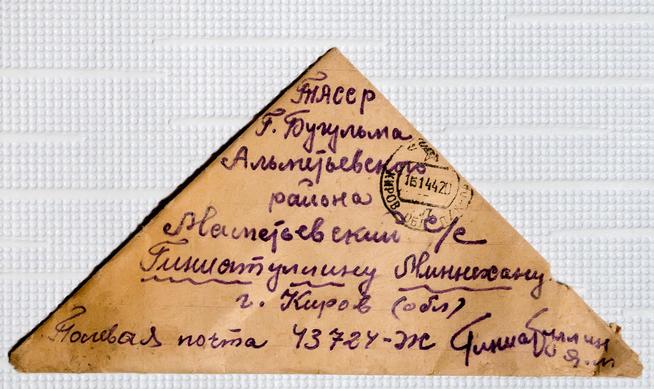 ТАССР
Г. Бугульма
Альметьевского
района
Маметьевский с/с
Гиниатуллину Миннехану
г. Киров (обл)
Полевая почта 43724-Ж Гиниатуллин
КИРОВ
1514420